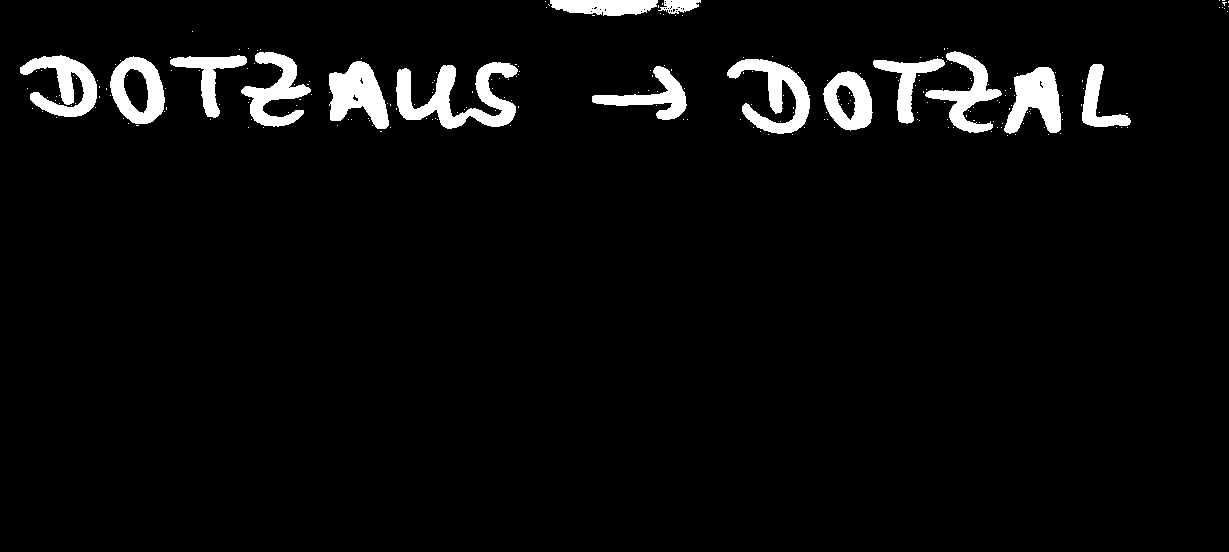 DOTZAUS → DOTZAL